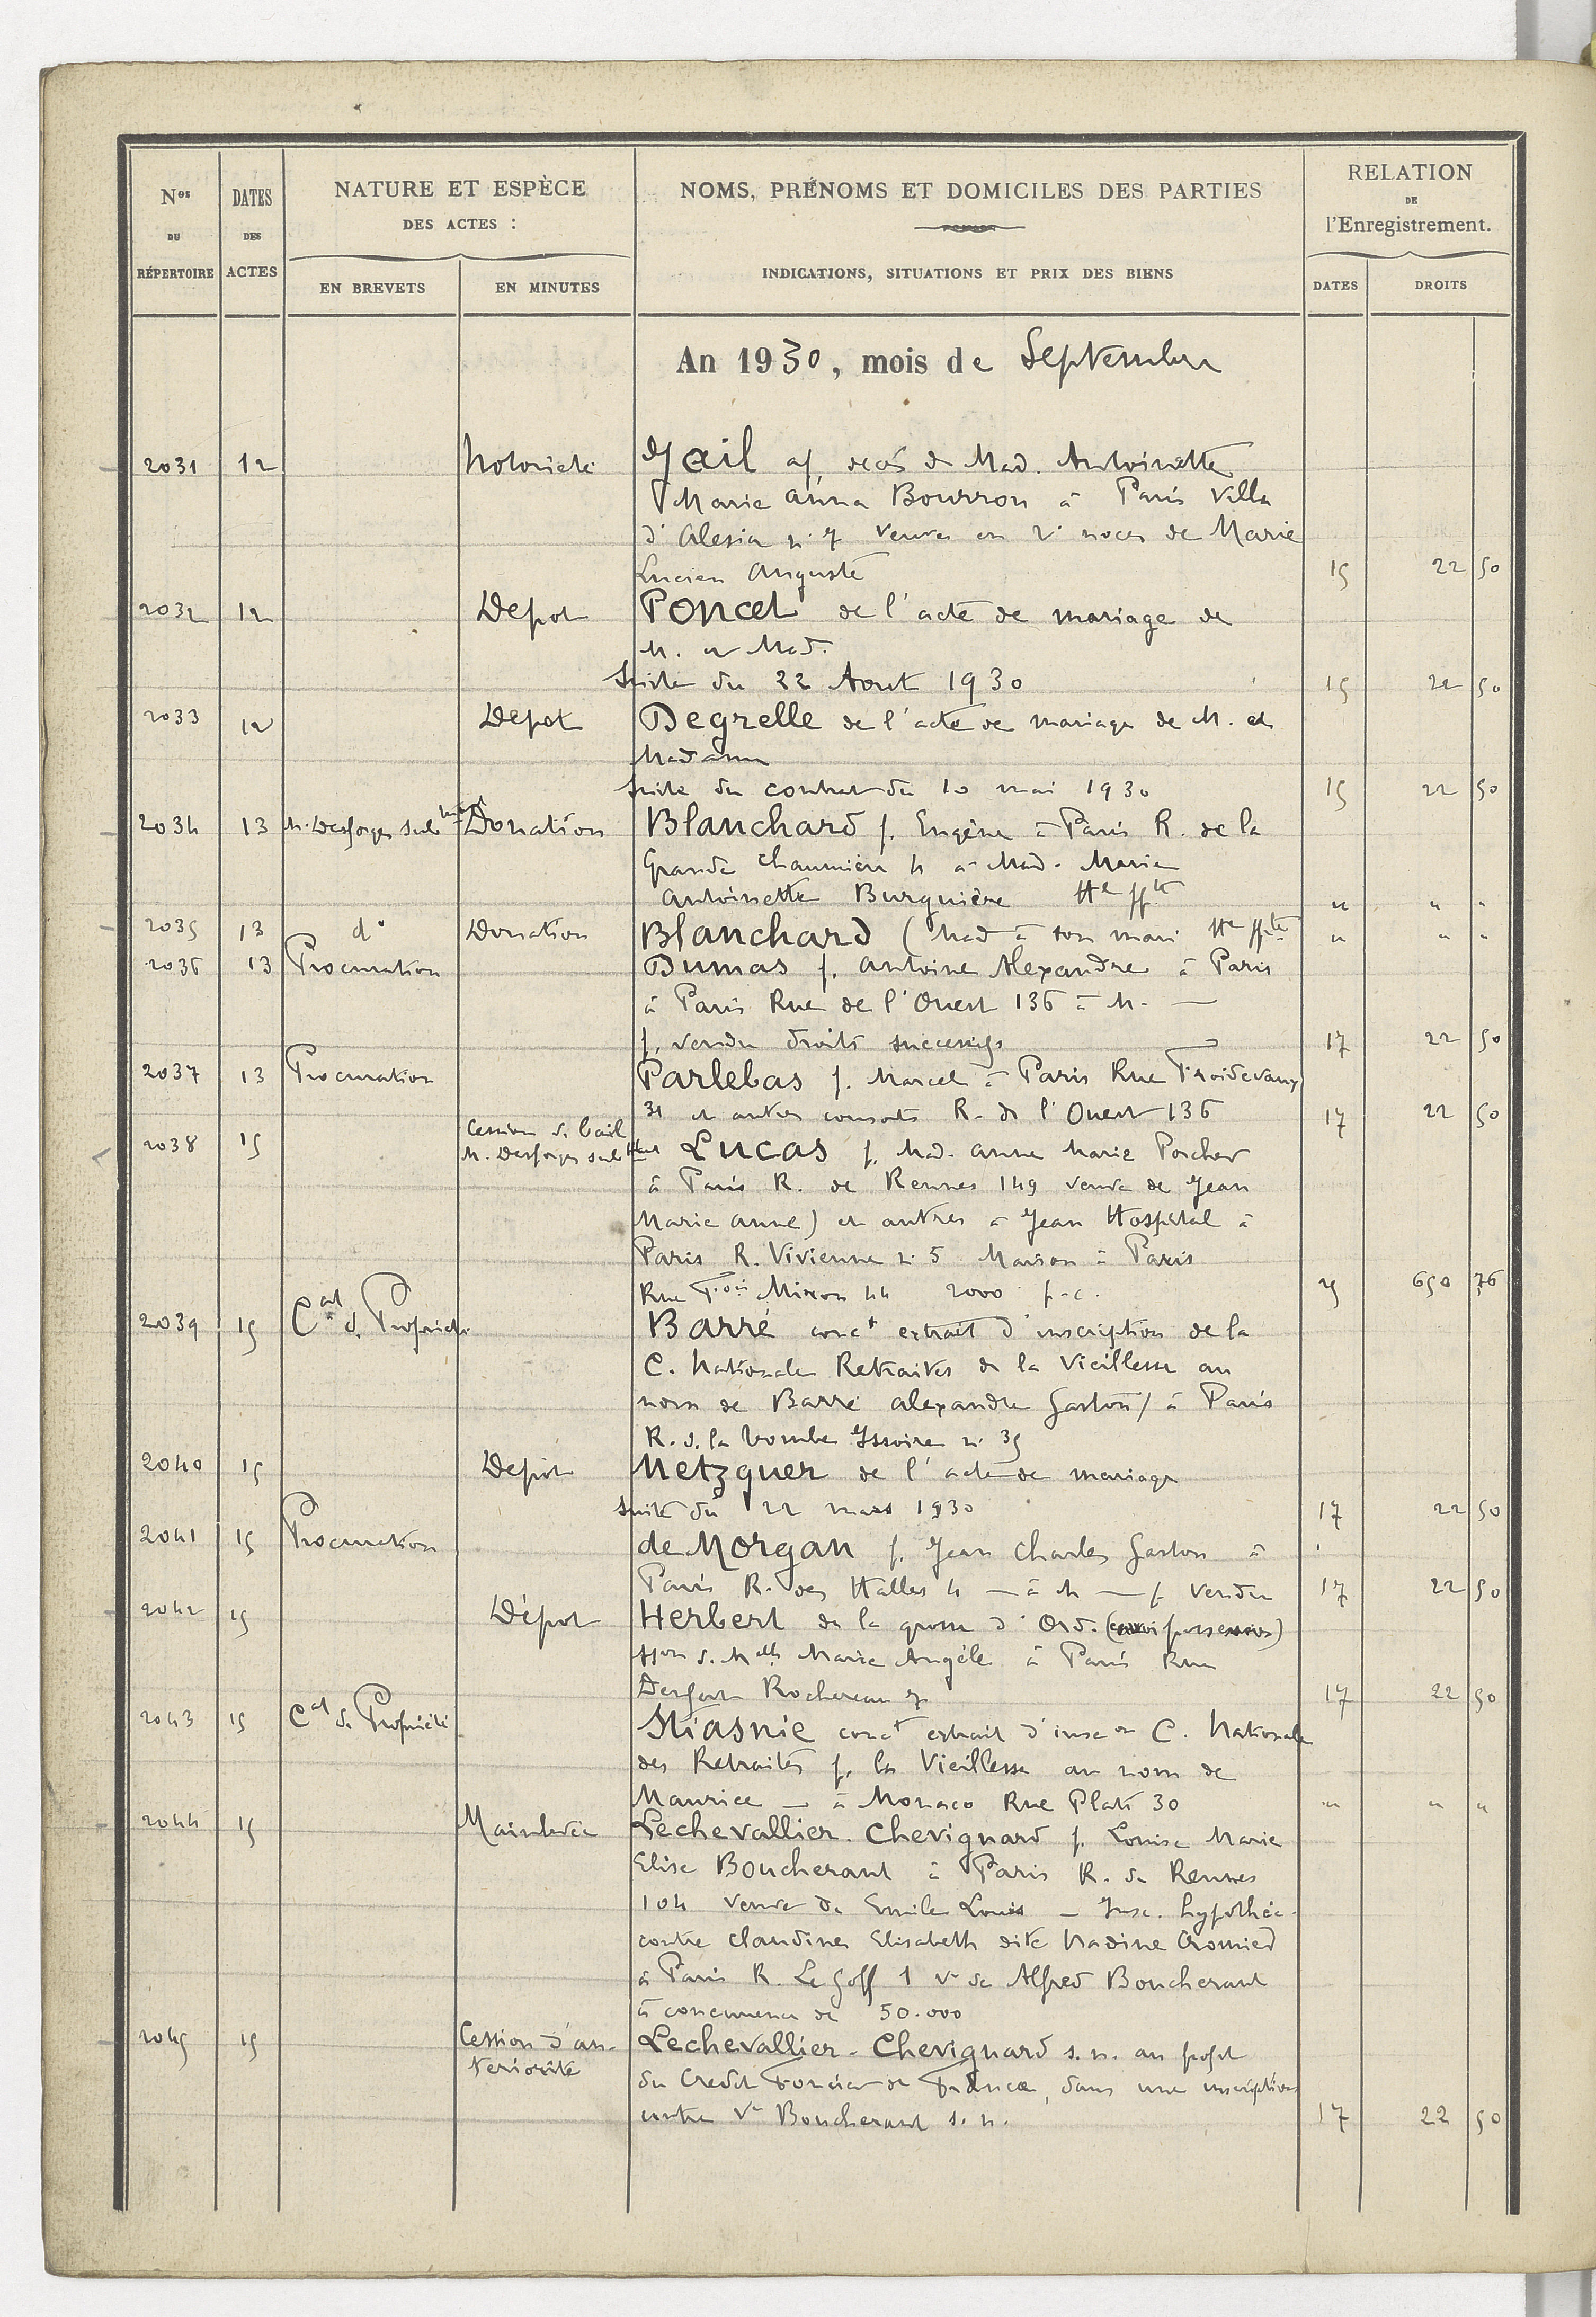 Nos DU RÉPERTOIRE
DATES DES ACTES
NATURE ET ESPÈCE
DES ACTES :
EN BREVETS
EN MINUTES
NOMS, PRÉNOMS ET DOMICILES DES PARTIES
INDICATIONS, SITUATIONS ET PRIX DES BIENS
RELATION
DE
l'Enregistrement.
DATES
DROITS
An 1930, mois de Septembre
2031 12 Notoriété Jail ap. décès de Mad. Antoinette
Marie Anna Bourron à Paris Villa
d'Alesia n° 7 veuve en 2es noces de Marie
Lucien Auguste 15 22 50
2032 12 Depot Poncet de l'acte de mariage de
M. et Mad.
Suite du 22 Aout 1930 15 22 50
2033 12 Depot Degrelle de l'acte de mariage de M. et
Madame
Suite du contrat du 10 mai 1930 15 22 50
2034 13 M. Desforges substituant Donation Blanchard p. Eugène à Paris R. de la
Grande Chaumière 4 à Mad. Marie
Antoinette Burguière
" " "
2035 13 d° Donation Blanchard (Mad à son mari " " "
2036 13 Procuration Dumas p. Antoine Alexandre à Paris
à Paris Rue de l'Ouest 136 à M. —
p. vendre droits successifs 17 22 50
2037 13 Procuration Parlebas p. Marcel à Paris Rue Froidevaux
31 et autres consorts R. de l'Ouest 136 17 22 50
2038 15 Cession de bail
M. Desforges substituant Lucas p. Mad. Anne Marie Porcher
à Paris R. de Rennes 149 veuve de Jean
Marie Anne) et autres à Jean Hospital à
Paris R. Vivienne n° 5 Maison à Paris
Rue Fois Miron 44 2000 f. c. 650 76
2039 15 Cat de Propriété Barré conct extrait d'inscription de la
C. Nationale Retraites de la Vieillesse au
nom de Barré Alexandre Gaston / à Paris
R. de la Tombe Issoire n° 35
2040 15 Depot Metzguer de l'acte de mariage
Suite du 22 mars 1930 17 22 50
2041 15 Procuration de Morgan p. Jean Charles Gaston à
Paris R. des Halles 4 — à M — p. vendre 17 22 50
2042 15 Dépot Herbert de la grosse d'Ord. (envoi possession)
son de Melle Marie Angèle à Paris Rue
Denfert Rochereau 7 17 22 50
2043 15 Cat de Propriété Stiasnie conct extrait d'inscon C. Nationale
des Retraites p. la Vieillesse au nom de
Maurice — à Monaco Rue Plati 30 " " "
2044 15 Mainlevée Lechevallier-Chevignard p. Louise Marie
Elise Boucherant à Paris R. de Rennes
104 veuve de Emile Louis — Insc. hypothéc.
contre Claudine Elisabeth dite Nadine Cromied
à Paris R. Le Goff 1 Ve de Alfred Boucherant
à concurrence de 50.000
2045 15 Cession d'an-
tériorité Lechevallier-Chevignard s. n. au profit
du Credit Foncier de France, dans une inscription
contre Ve Boucherant s. n. 17 22 50